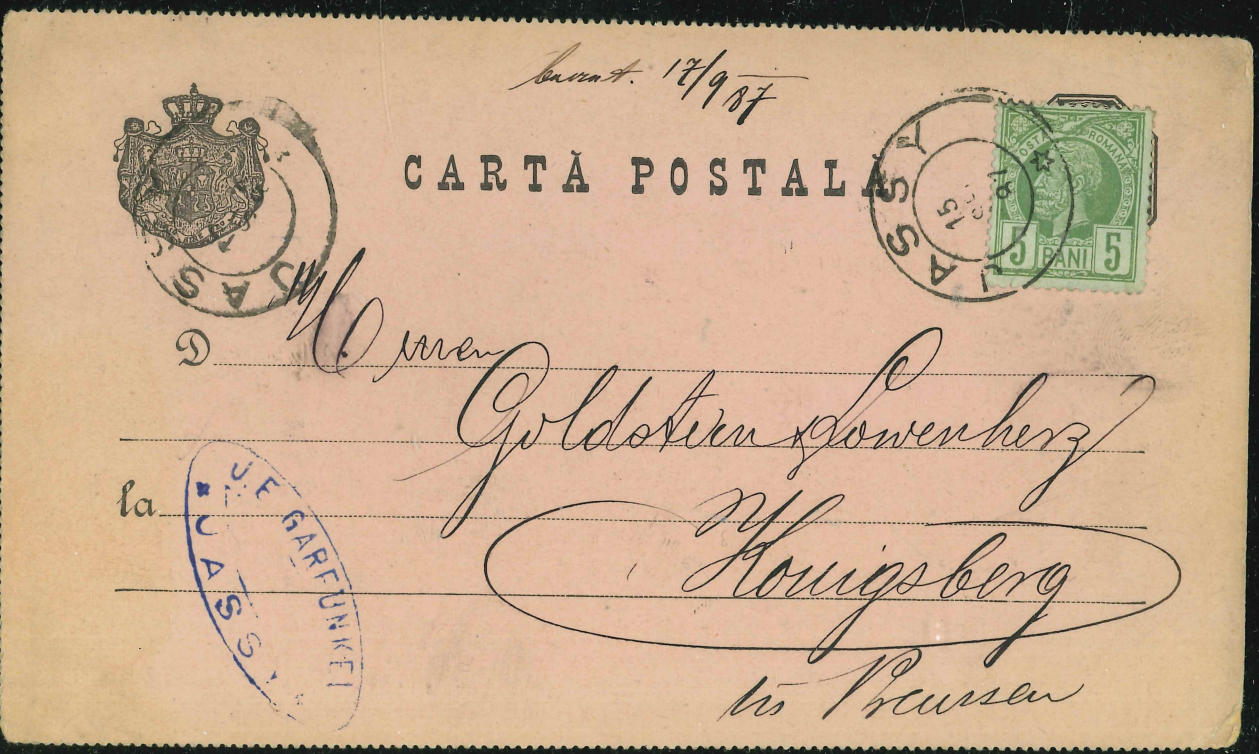 17/9 87
CARTĂ POSTALĂ
JASSY
15
POSTA ROMANA
5 BANI 5
JAS
D
Herren
Goldstern & Löwenherz
la
Königsberg
in Preussen
J. E. GARFUNKEL
JASSY